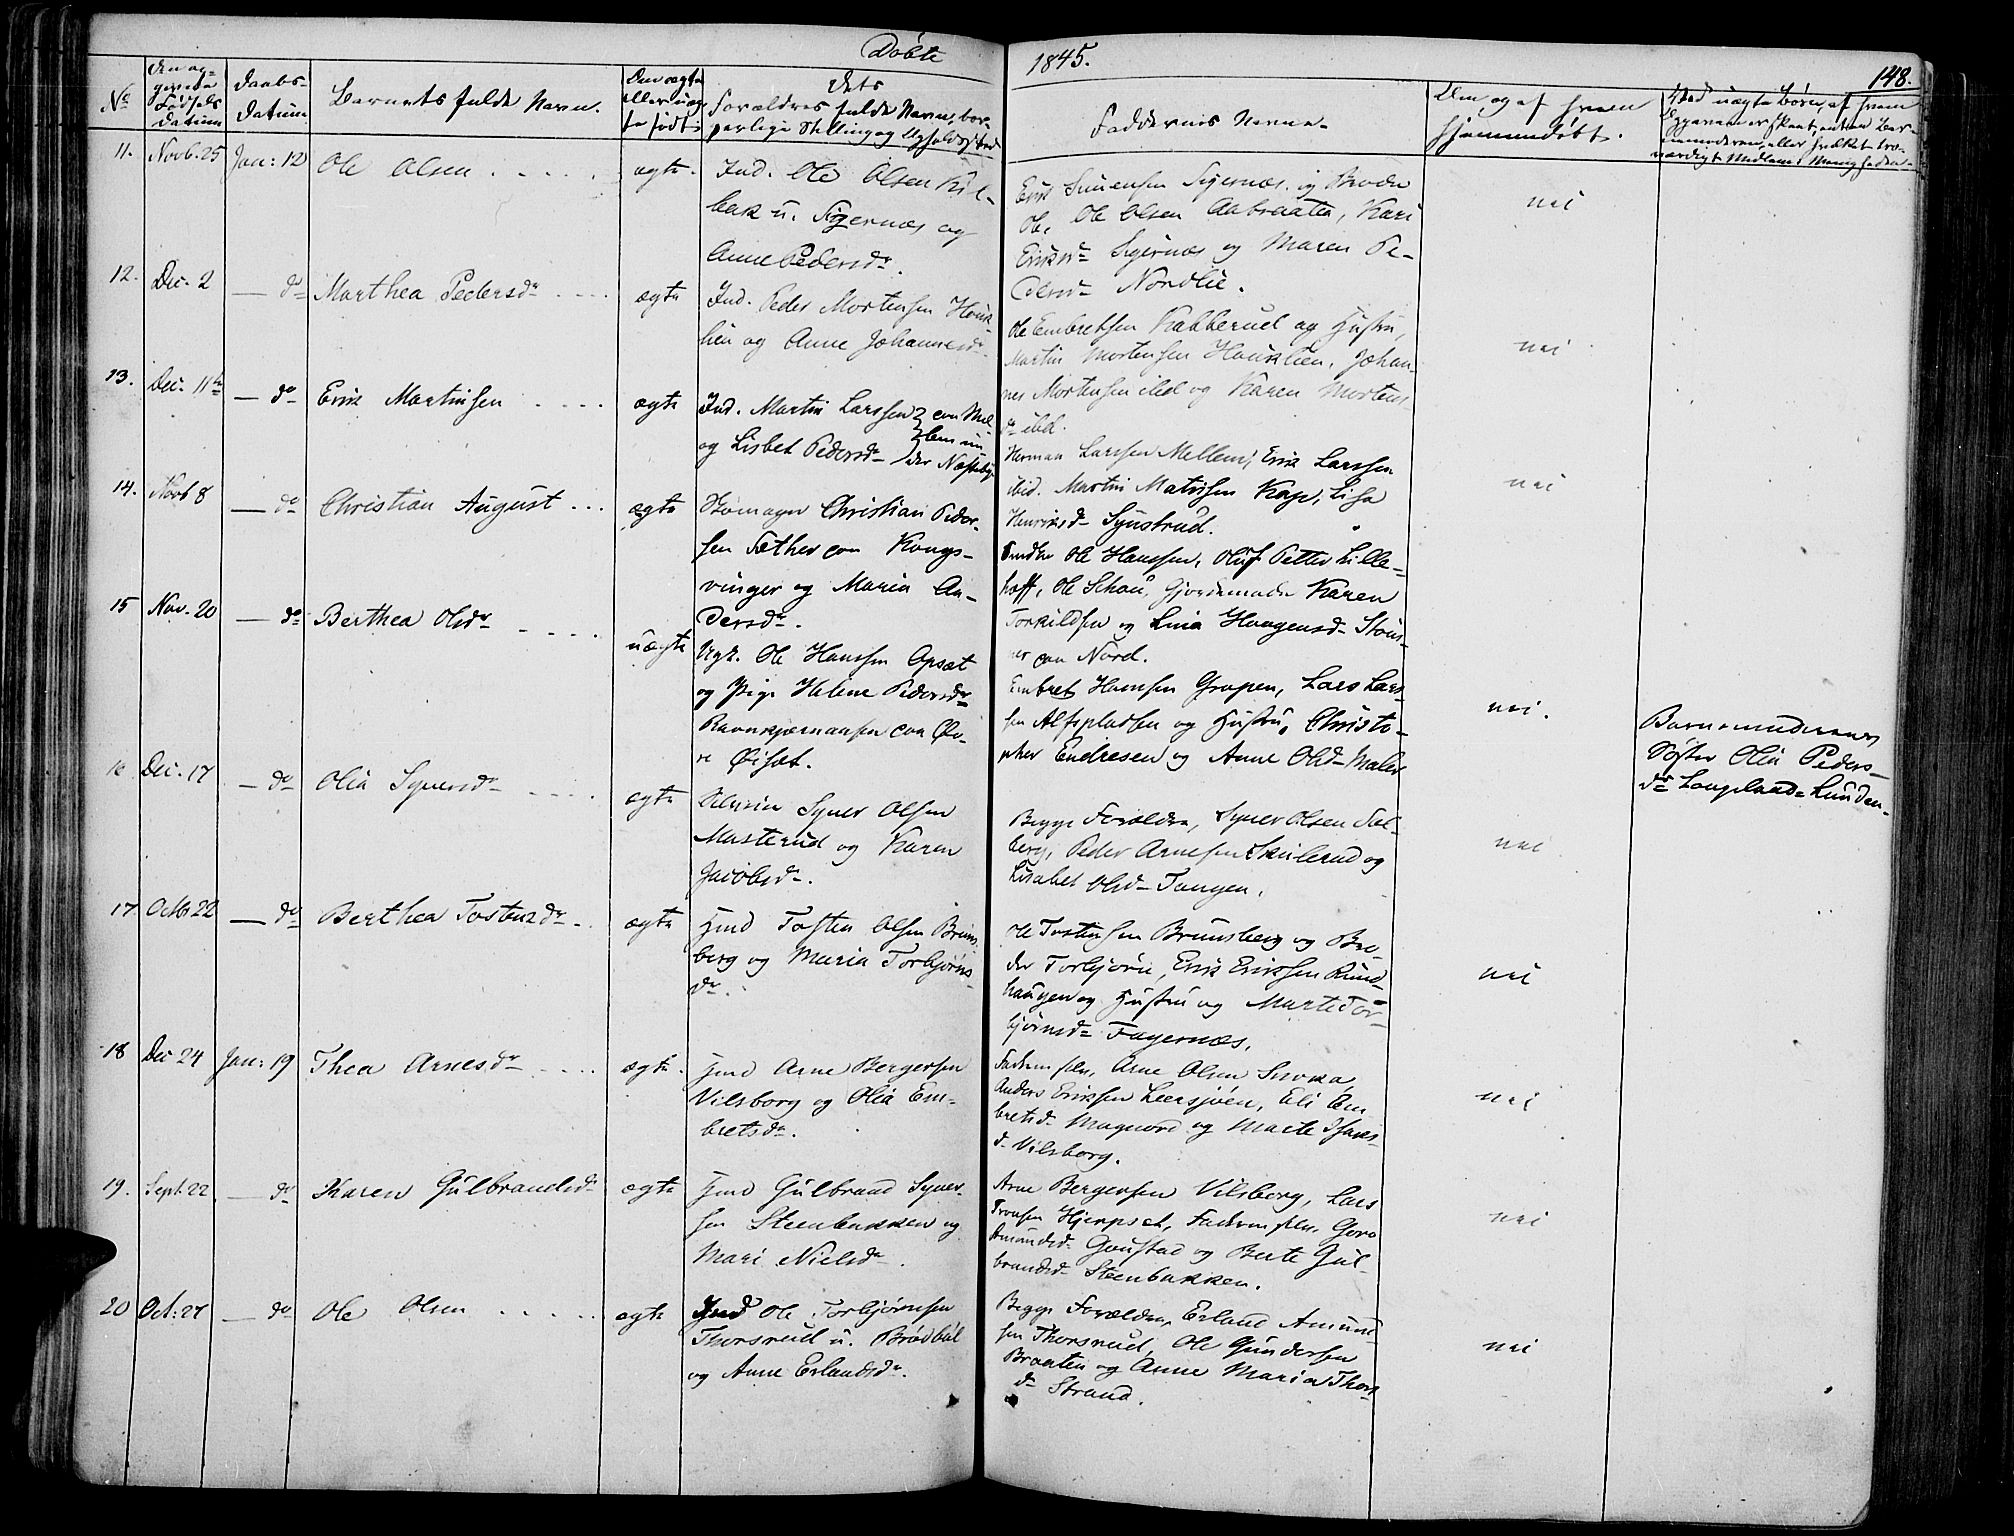 Døbte
1845.
148.
No
Fødsels
Datum
Daabs-
Datum
Barnets fulde Navn.
Om ægte
eller uæg-
te født
Dets
Forældres fulde Navne, bor-
gerlige Stilling og Opholdssted
Faddernes Navne.
Om og af hvem
hjemmedøbt.
11. Novb. 25 Jan: 12 Ole Olsen ægte
Ind. Ole Olsen
u. Sigernæs og
Anne Pedersdr.
Erik Sigernæs og Broder
Ole, Ole Olsen Aabraaten, Kari
Eriksdr Sigernæs og Maren Pe-
dersdr Nordlie.
nei
12. Dec. 2 — do Marthea Pedersdr ægte
Ind. Peder Mortensen Houk-
lien og Anne Johannesdr
Ole Embretsen Kabberud og Hustru,
Martin Mortensen Houklien, Johan-
nes Mortensen ibid og Karen Mortens
dr ibd.
nei
13. Dec. 11te — do Erik Martinsen ægte
Ind. Martin Larssen
og Lisbet Pedersdr
Herman Larssen Mellem, Erik Larssen
ibid. Martin Matissen Kap, Lisa
Henriksdr Synstrud.
nei
14. Novb 8 — do Christian August ægte
Skomager Christian Peder-
sen Sæther paa Kongs-
vinger og Maria An-
dersdr.
Ole Hanssen, Oluf Petter Lille-
hoff, Ole Schou, Gjordemoder Karen
Torkildsen og Lina Haagensdr
paa Nord.
15 Nov. 20 — do Berthea Olsdr uægte
Ugk. Ole Hanssen Opsæt
og Pige Helene Pedersdr
paa Øv-
re Øisæt.
Embret Hansen Grapen, Lars Lars-
sen Alfspladsen og Hustru, Christo-
pher Endresen og Anne Olsdr
nei.
Barnemoderens
Søster Olia Peders-
dr Langeland-Lunden.
16 Dec. 17 — do Olia Syversdr ægte
Syver Olsen
Masterud og Karen
Jacobsdr.
Begge Forældre, Syver Olsen Sol-
berg, Peder Arnesen Skulerud og
Lisabet Olsdr Tangen.
nei
17 Octb 22 — do Berthea Tostensdr ægte
Tosten Olsen Bruns-
berg og Maria Torbjørns
dr.
Ole Tostensen Brunsberg og Bro-
der Torbjørn, Erik Eriksen Rund-
haugen og Hustru og Marte Tor-
bjørnsdr Fagernæs.
nei
18 Dec 24 Jan: 19 Thea Arnesdr ægte
Arne Bergersen
Vilsborg og Olia Em-
bretsdr.
Arne Olsen
Anders Eriksen Leersjøen, Eli Em
bretsdr Magnord og Marte Isaks-
dr Vilsborg.
nei
19. Sept. 22 — do Karen Gulbrandsdr ægte
Gulbrand Syver-
sen Steenbakken og
Mari Nielsdr.
Arne Bergersen Vilsborg, Lars
Tronsen Hjerpset, Goro
Amundsdr Goustad og Berte Gul-
brandsdr Steenbakken.
nei
20 Oct: 27 — do Ole Olsen ægte
Ind Ole Torbjørnsen
Thorsrud u. Brødbøl
og Anne Erlandsdr.
Begge Forældre, Erland Amund-
sen Thorsrud, Ole Gundersen
Braaten og Anne Maria Thors
dr Strand.
nei